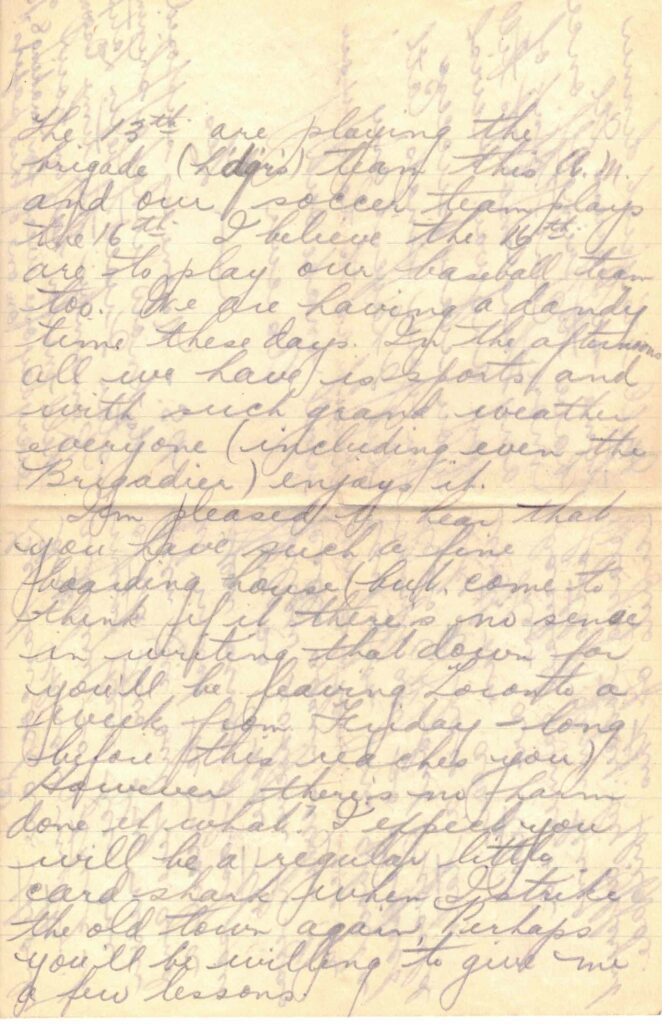 The 13th are playing the
brigade (h'dq'rs) team this A.M.
and our soccer team plays
the 16th. I believe the 16th
are to play our baseball team
too. We are having a dandy
time these days. In the afternoons
all we have is sports and
with such grand weather
everyone (including even the
Brigadier) enjoys it.
I am pleased to hear that
you have such a fine
boarding house (but come to
think of it there's no sense
in writing that down for
you'll be leaving Toronto a
week from Friday - long
before this reaches you)
However there's no harm
done eh what? I expect you
will be a regular little
card shark when I strike
the old town again. Perhaps
you'll be willing to give me
a few lessons.